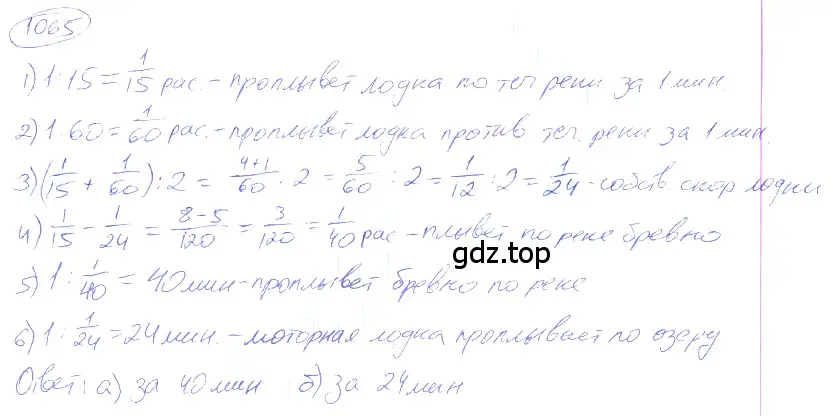 1065
1) 1 : 15 = 1/15 рас. – проплывет лодка по теч реки за 1 мин.
2) 1 · 60 = 1/60 рас. – проплывет лодка против теч. реки за 1 мин.
3) (1/15 + 1/60) : 2 = 4+1/60 · 2 = 5/60 : 2 = 1/12 : 2 = 1/24 - собств скор лодки
4) 1/15 - 1/24 = 8-5/120 = 3/120 = 1/40 рас – плывет по реке бревно
gdz.top
5) 1 : 1/40 = 40 мин - проплывет бревно по реке
6) 1 : 1/24 = 24 мин. – моторная лодка проплывает по озеру
Ответ: а) за 40 мин б) за 24 мин